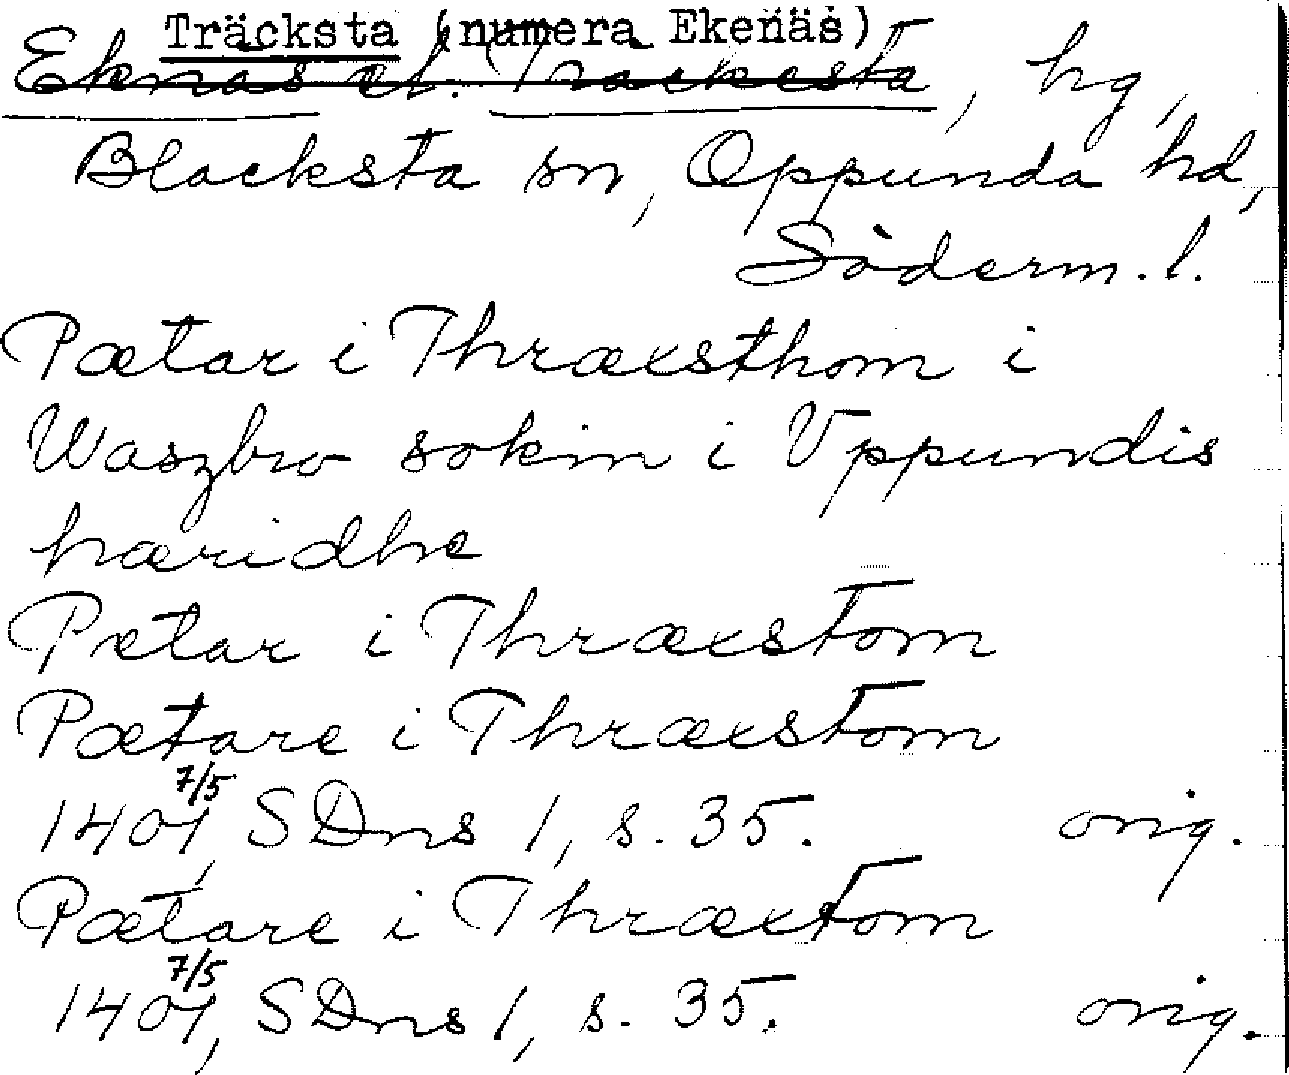 Träcksta (numera Ekenäs)
Eknäs el. Träcksta, hg,
Blacksta sn, Oppunda hd,
Söderm. l.
Pætar i Thræxsthom i
Waszbro sokin i Vppundis
hæridhe
Petar i Thræxstom
Pætare i Thræxstom
1401 7/5, SDns 1, s. 35. orig.
Pætare i Thræxtom
1401 7/5, SDns 1, s. 35. orig.